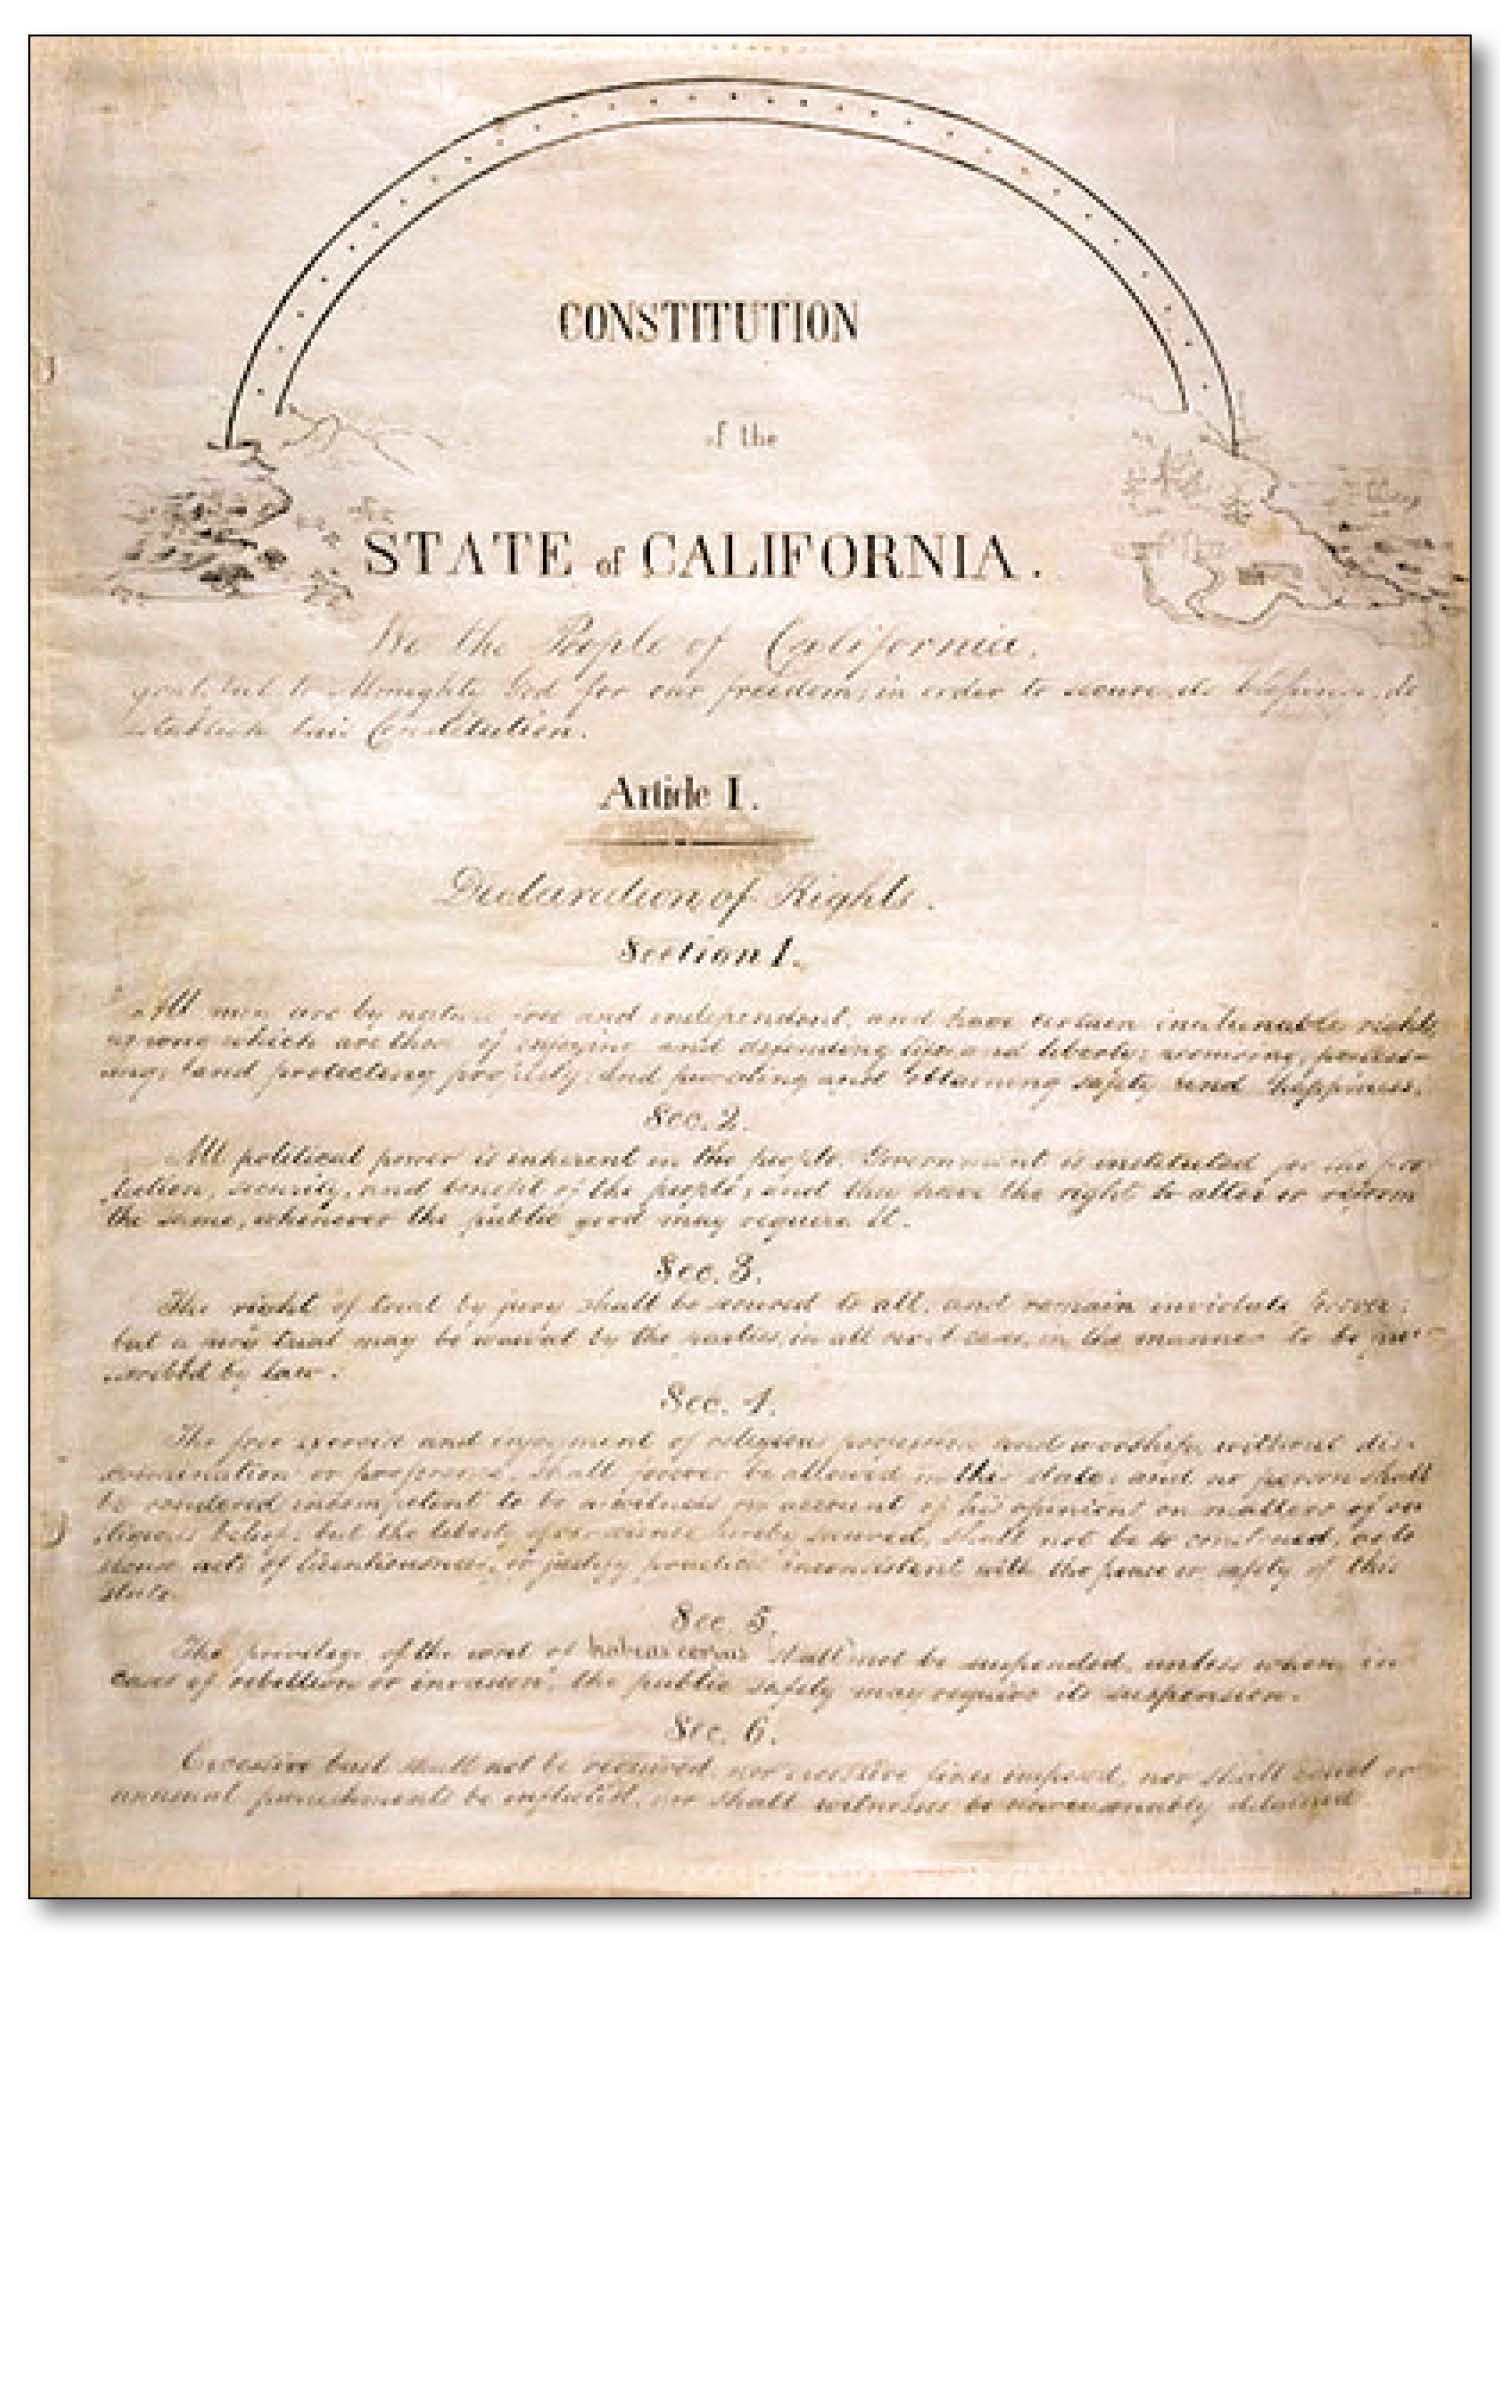 CONSTITUTION
of the
STATE of CALIFORNIA.
We the People of California,
grateful to Almighty God for our freedom; in order to secure its blessings, do
establish this Constitution.
Article I.
Declaration of Rights.
Section 1.
All men are by nature free and independent, and have certain inalienable rights,
among which are those of enjoying and defending life and liberty; acquiring, possess-
ing, and protecting property; and pursuing and obtaining safety and happiness.
Sec. 2.
All political power is inherent in the people. Government is instituted for the pro-
tection, security, and benefit of the people; and they have the right to alter or reform
the same, whenever the public good may require it.
Sec. 3.
The right of trial by jury shall be secured to all, and remain inviolate forever;
but a jury trial may be waived by the parties, in all civil cases, in the manner to be pre-
scribed by law.
Sec. 4.
The free exercise and enjoyment of religious profession and worship, without dis-
crimination or preference, shall forever be allowed in this state: and no person shall
be rendered incompetent to be a witness on account of his opinions on matters of re-
ligious belief; but the liberty of conscience hereby secured, shall not be so construed, as to
excuse acts of licentiousness, or justify practices inconsistent with the peace or safety of this
state.
Sec. 5.
The privilege of the writ of habeas corpus shall not be suspended, unless when, in
cases of rebellion or invasion, the public safety may require its suspension.
Sec. 6.
Excessive bail shall not be required, nor excessive fines imposed, nor shall cruel or
unusual punishments be inflicted, nor shall witnesses be unreasonably detained